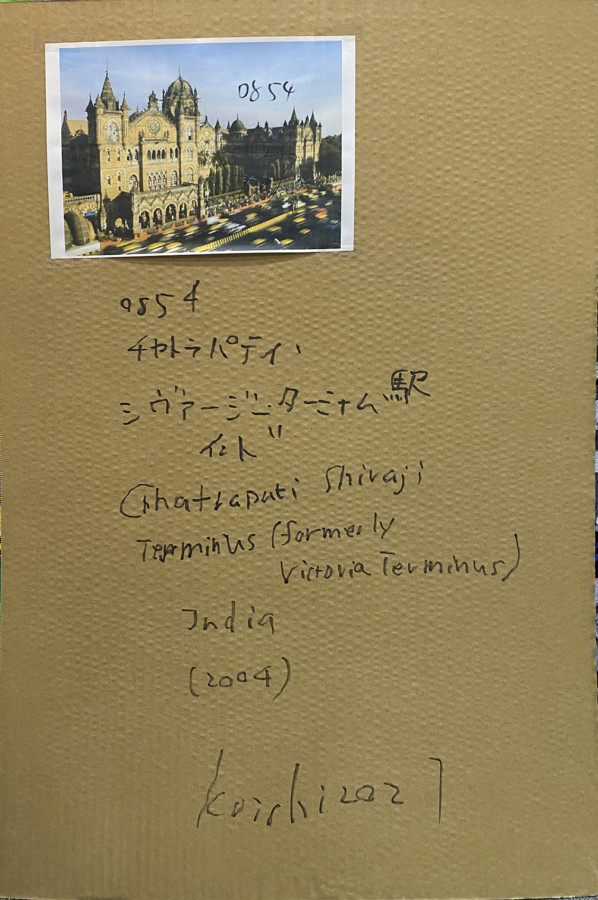 0854
0854
チャトラパティ、
シヴァージー・ターミナム駅
インド
Chhatrapati Shivaji
Terminus (formerly
Victoria Terminus)
India
(2004)
Koichi 2021